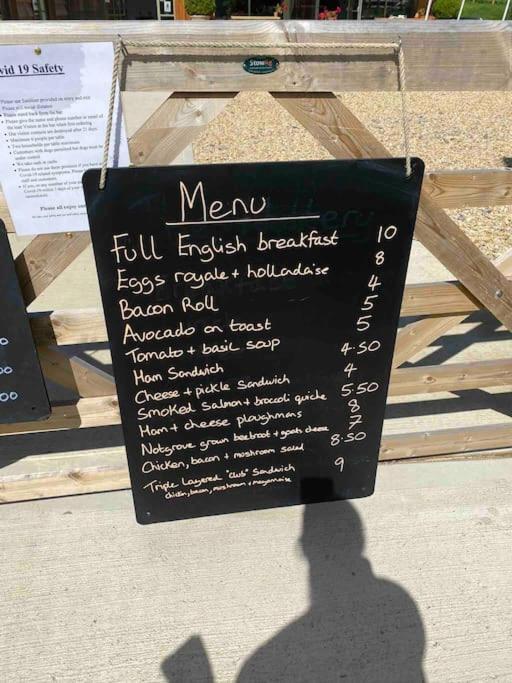 vid 19 Safety
Please use Sanitiser provided on entry and exit
Please still social distance
Please stand back from the bar
Please give the name and phone number or email of
the lead Visitor at the bar when first ordering
Our visitor contacts are destroyed after 21 days
Maximum 6 people per table
Two households per table maximum
Customers with dogs permitted but dogs must be
under control
We take cash or cards
Please do not use these premises if you have
Covid 19 related symptoms
staff and customers.
If you, or any member of your
Please all enjoy
Stowag
Menu
Full English breakfast 10
Eggs royale + hollandaise 8
Bacon Roll 4
Avocado on toast 5
Tomato + basil soup 5
Ham Sandwich 4.50
Cheese + pickle Sandwich 4
Smoked Salmon + broccoli quiche 5.50
Ham + cheese ploughmans 8
Notgrove grown beetroot + goats cheese 7
Chicken, bacon + mushroom salad 8.50
Triple Layered "Club" Sandwich 9
Chicken, bacon, mushroom + mayonnaise
0
00
00